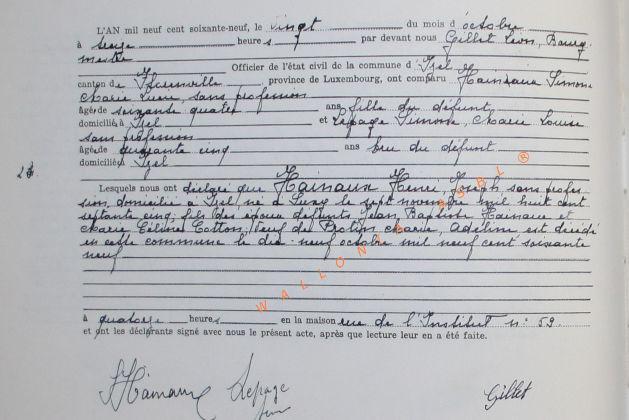 L'AN mil neuf cent soixante-neuf, le vingt du mois d'octobre
à seize heure s par devant nous Gillet Léon, Bourg-
mestre Officier de l'état civil de la commune d'Izel
canton de Florenville, province de Luxembourg, ont comparu Hainaux Simone
Marie, sans profession
âgée de soixante quatre ans fille du défunt
domiciliée à Izel et Lepage Simone, Marie Louise
sans profession
âgée de quarante cinq ans bru du défunt
domiciliée à Izel
Lesquels nous ont déclaré que Hainaux Henri, Joseph, sans profes-
sion, domicilié à Izel né à le sept novembre mil huit cent
septante cinq; fils des époux défunts, Jean Baptiste Hainaux et
Marie Céline Cotton; veuf de Marie, Adeline est décédé
en cette commune le dix-neuf octobre mil neuf cent soixante
neuf
WALLONIA ASBL ®
à quatorze heure s en la maison rue de l'Institut n° 59
et ont les déclarants signé avec nous le présent acte, après que lecture leur en a été faite.
SHainaux Lepage Gillet